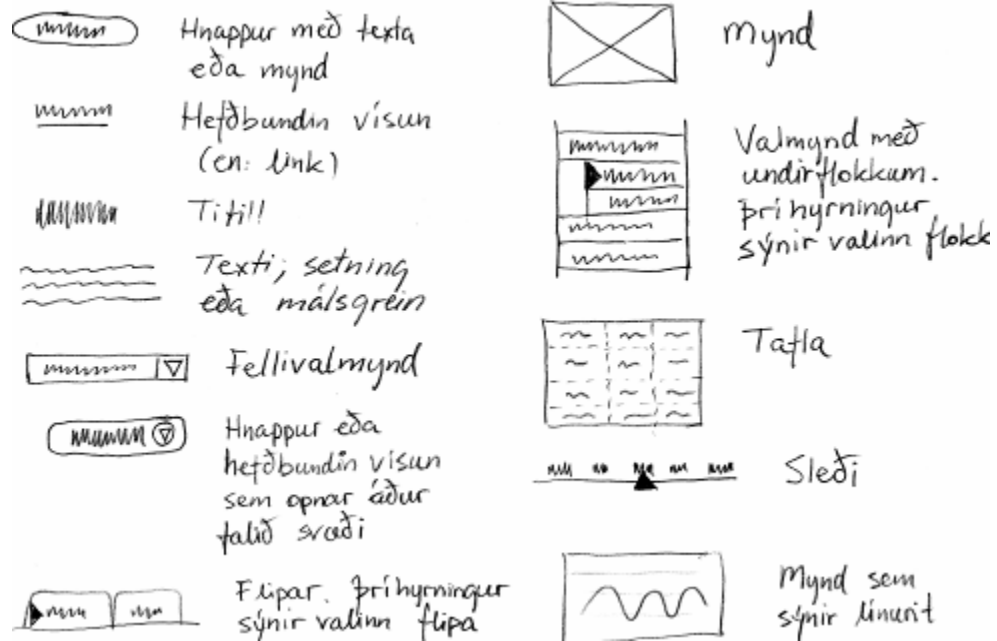 Hnappur með texta
eða mynd
Hefðbundin vísun
(en: link)
Titill
Texti; setning
eða málsgrein
Fellivalmynd
Hnappur eða
hefðbundin vísun
sem opnar áður
falið svæði
Flipar. Þríhyrningur
sýnir valinn flipa
Mynd
Valmynd með
undirflokkum.
Þríhyrningur
sýnir valinn flokk
Tafla
Sleði
Mynd sem
sýnir línurit